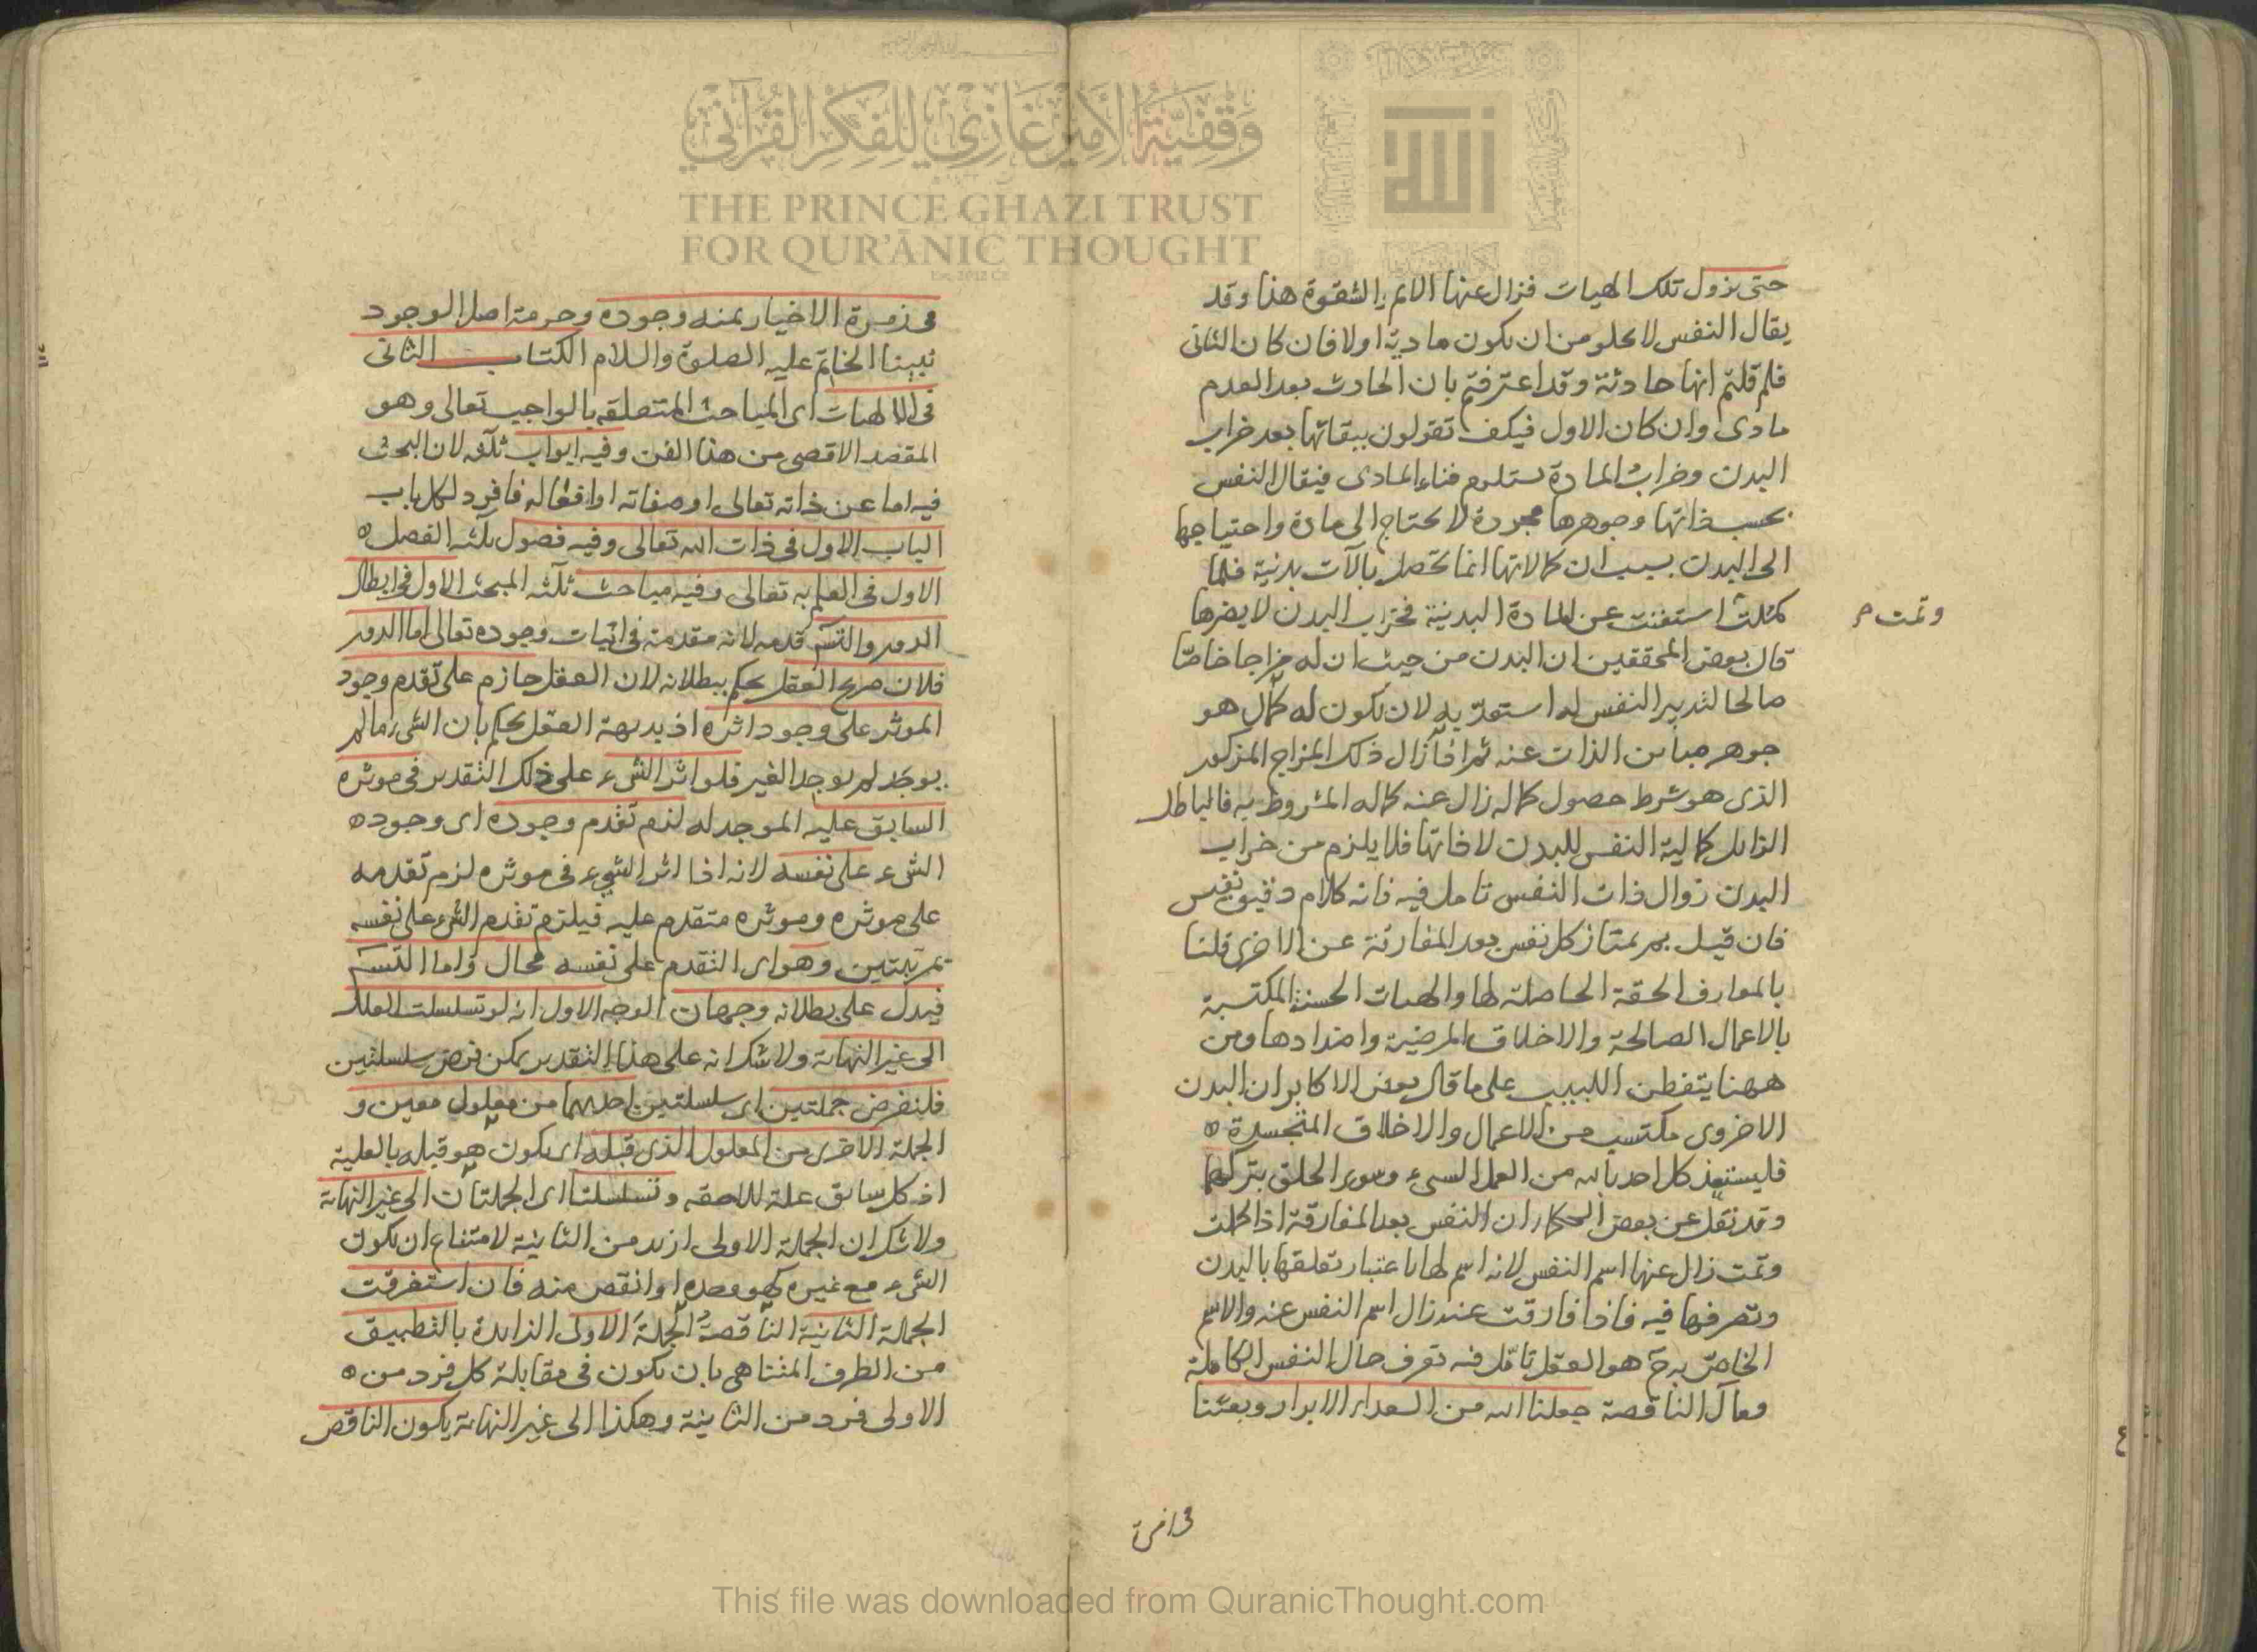 حتى يزول تلك الهيات فزال عنها الالم والشقوة هذا وقد
يقال النفس لا يخلو من ان يكون مادية اولا فان كان الثاني
فلم قلتم انها حادثة وقد اعترفتم بان الحادث بعد العدم
مادى وان كان الاول فكيف تقولون ببقائها بعد خراب
البدن وخراب المادة يستلزم فناء المادى فيقال النفس
بحسب ذاتها وجوهرها مجردة لا يحتاج الى مادة واحتياجها
الى البدن بسبب ان كمالاتها انما تحصل بالآت بدنية فلما
كملت استغنت عن المادة البدنية فخراب البدن لا يضرها
وتمت م
قال بعض المحققين ان البدن من حيث ان له مزاجا خاصا
صالحا لتدبير النفس له استعد به لان يكون له كمال هو
جوهر مباين الذات عنه ثم اذا زال ذلك المزاج المذكور
الذى هو شرط حصول كماله زال عنه كماله المشروط به فالباطل
الزايل كمالية النفس للبدن لا ذاتها فلا يلزم من خراب
البدن زوال ذات النفس تامل فيه فانه كلام دقيق نفيس
فان قيل بم يمتاز كل نفس بعد المفارقة عن الاخرى قلنا
بالمعارف الحقة الحاصلة لها والهيات الحسنة المكتسبة
بالاعمال الصالحة والاخلاق المرضية واضدادها ومن
ههنا يتفطن اللبيب على ما قال بعض الاكابر ان البدن
الاخروى مكتسب من الاعمال والاخلاق المتجسدة
فليستعذ كل احد بالله من العمل السىء وسوء الخلق بتركهما
وقد نقل عن بعض الحكماء ان النفس بعد المفارقة اذا كملت
وتمت زال عنها اسم النفس لانه اسم لها باعتبار تعلقها بالبدن
وتصرفها فيه فاذا فارقت عنه زال اسم النفس عنه والاسم
الخاص به ح هو العقل تامل فيه تعرف حال النفس الكاملة
ومآل الناقصة جعلنا الله من السعداء الابرار وبعثنا
فى زمرة الاخيار بمنه وجوده وحرمة اصل الوجود
نبينا الخاتم عليه الصلوة والسلام الكتاب الثانى
فى الالهيات اى المباحث المتعلقة بالواجب تعالى وهو
المقصد الاقصى من هذا الفن وفيه ابواب ثلثة لان البحث
فيه اما عن ذاته تعالى او صفاته او افعاله فافرد لكل باب
الباب الاول فى ذات الله تعالى وفيه فصول ثلثة الفصل
الاول فى العلم به تعالى وفيه مباحث ثلثة المبحث الاول فى ابطال
الدور والتس قدمه لانه مقدمة فى اثبات وجوده تعالى اما الدور
فلان صريح العقل يحكم ببطلانه لان العقل جازم على تقدم وجود
الموثر على وجود اثره اذ بديهة العقل يحكم بان الشىء ما لم
يوجد لم يوجد الغير فلو اثر الشىء على ذلك التقدير فى موثره
السابق عليه الموجد له لزم تقدم وجوده اى وجود
الشىء على نفسه لانه اذا اثر الشىء فى موثره لزم تقدمه
على موثره وموثره متقدم عليه فيلزم تقدم الشىء على نفسه
بمرتبتين وهو اى التقدم على نفسه محال واما التس
فيدل على بطلانه وجهان الوجه الاول انه لو تسلسلت العلل
الى غير النهاية ولا شك انه على هذا التقدير يمكن فرض سلسلتين
فلنفرض جملتين اى سلسلتين احديهما من معلول معين و
الجملة الاخرى من المعلول الذى قبله اى يكون هو قبله بالعلية
اذ كل سابق علة للاحقه وتسلسلتا اى الجملتان الى غير النهاية
ولا شك ان الجملة الاولى ازيد من الثانية لامتناع ان يكون
الشىء مع غيره كهو وحده او انقص منه فان استغرقت
الجملة الثانية الناقصة الجملة الاولى الزايدة بالتطبيق
من الطرف المتناهى بان يكون فى مقابلة كل فرد من
الاولى فرد من الثانية وهكذا الى غير النهاية يكون الناقص
وقفية الأمير غازي للفكر القرآني
THE PRINCE GHAZI TRUST
FOR QUR'ĀNIC THOUGHT
الله
This file was downloaded from QuranicThought.com